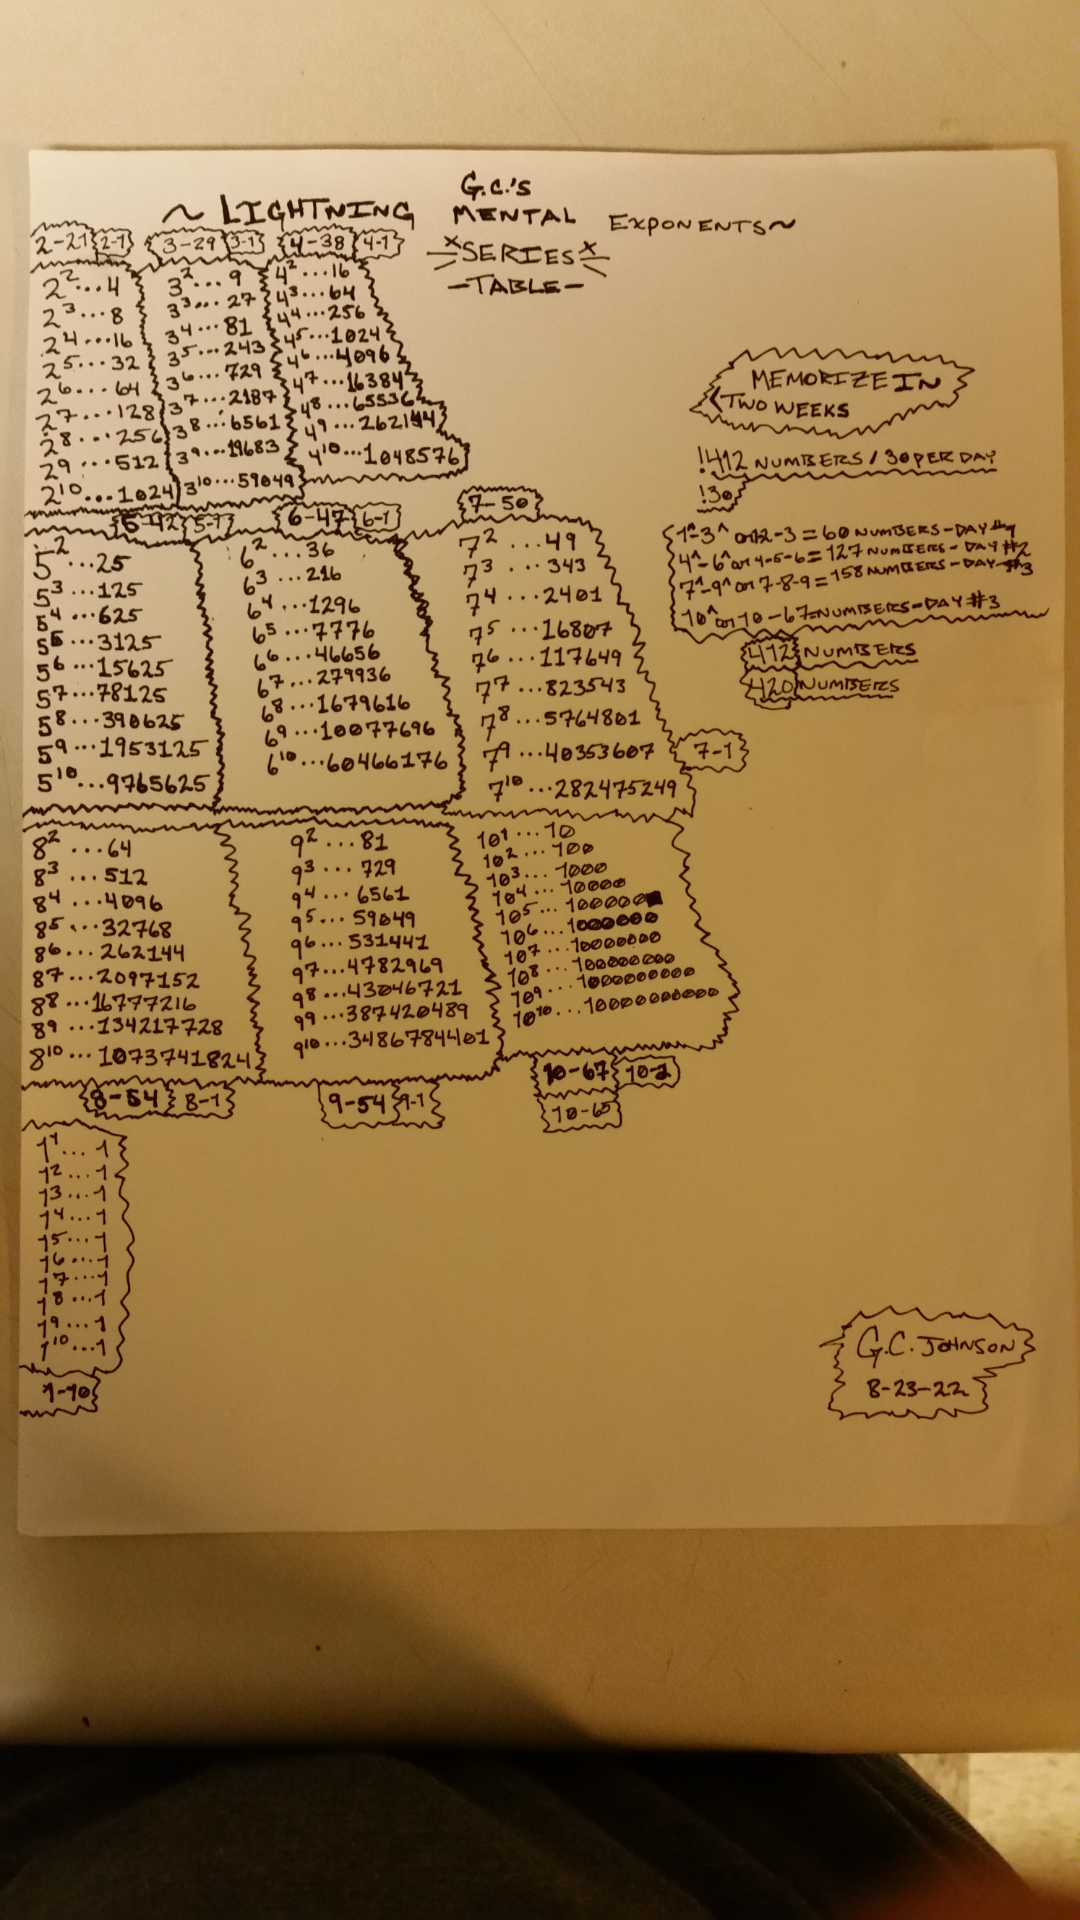 G.C.'s
~ LIGHTNING MENTAL EXPONENTS~
×SERIES×
-TABLE-
2-21 2-1 3-29 3-1 4-38 4-1
2² ...4
2³ ...8
2⁴ ...16
2⁵ ...32
2⁶ ...64
2⁷ ...128
2⁸ ...256
2⁹ ...512
2¹⁰ ...1024
3² ...9
3³ ...27
3⁴ ...81
3⁵ ...243
3⁶ ...729
3⁷ ...2187
3⁸ ...6561
3⁹ ...19683
3¹⁰ ...59049
4² ...16
4³ ...64
4⁴ ...256
4⁵ ...1024
4⁶ ...4096
4⁷ ...16384
4⁸ ...65536
4⁹ ...262144
4¹⁰ ...1048576
MEMORIZE IN
TWO WEEKS
!412 NUMBERS / 30 PER DAY
!30
1^-3^ or 12-3 = 60 NUMBERS-DAY #1
4^-6^ or 4-5-6 = 127 NUMBERS-DAY #2
7^-9^ or 7-8-9 = 158 NUMBERS-DAY #3
10^ or 10-67-NUMBERS-DAY #3
412 NUMBERS
420 NUMBERS
5-42 5-1 6-47 6-1 7-50
5² ...25
5³ ...125
5⁴ ...625
5⁵ ...3125
5⁶ ...15625
5⁷ ...78125
5⁸ ...390625
5⁹ ...1953125
5¹⁰ ...9765625
6² ...36
6³ ...216
6⁴ ...1296
6⁵ ...7776
6⁶ ...46656
6⁷ ...279936
6⁸ ...1679616
6⁹ ...10077696
6¹⁰ ...60466176
7² ...49
7³ ...343
7⁴ ...2401
7⁵ ...16807
7⁶ ...117649
7⁷ ...823543
7⁸ ...5764801
7⁹ ...40353607
7¹⁰ ...282475249
7-1
8² ...64
8³ ...512
8⁴ ...4096
8⁵ ...32768
8⁶ ...262144
8⁷ ...2097152
8⁸ ...16777216
8⁹ ...134217728
8¹⁰ ...1073741824
9² ...81
9³ ...729
9⁴ ...6561
9⁵ ...59049
9⁶ ...531441
9⁷ ...4782969
9⁸ ...43046721
9⁹ ...387420489
9¹⁰ ...3486784401
10¹ ...10
10² ...100
10³ ...1000
10⁴ ...10000
10⁵ ...100000
10⁶ ...1000000
10⁷ ...10000000
10⁸ ...100000000
10⁹ ...1000000000
10¹⁰ ...10000000000
8-54 8-1 9-54 9-1 10-67
10-65
1¹ ...1
1² ...1
1³ ...1
1⁴ ...1
1⁵ ...1
1⁶ ...1
1⁷ ...1
1⁸ ...1
1⁹ ...1
1¹⁰ ...1
1-10
G.C. JOHNSON
8-23-22